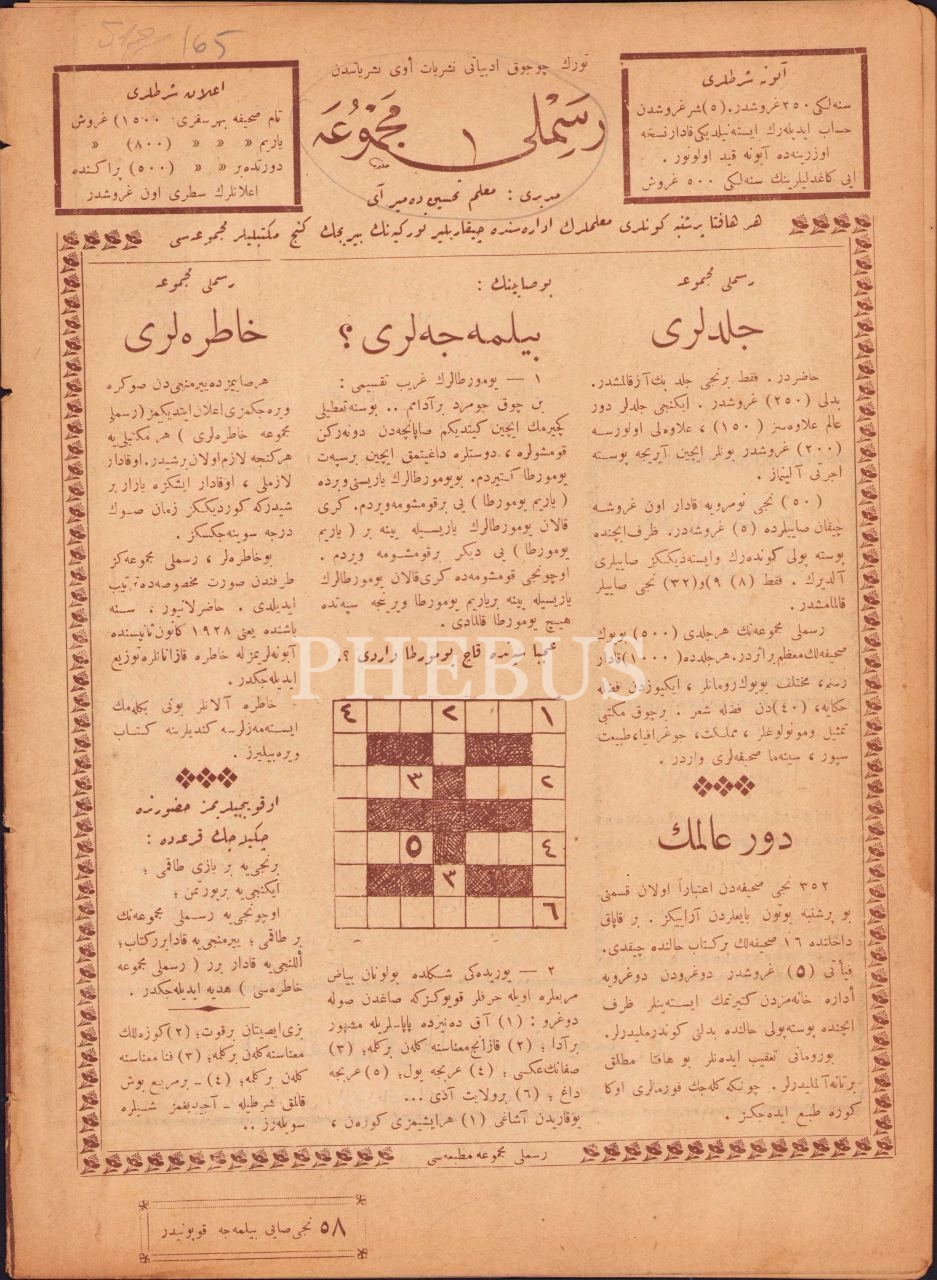 518 165
تورك چوجوق ادبیاتی نشریات أوی نشریاتندن
آبونه شرطلری
سنه‌لكی ۲۵۰ غروشدر. (۵) شر غروشدن
حساب ایدیله‌رك ایسته‌نیلدیكی قادار نسخه
اوزرینه‌ده آبونه قید اولونور .
ایی كاغدلیلرینك سنه‌لكی ۵۰۰ غروش
رسملی مجموعه
۱
مدیری : معلم تحسین ده‌میر آی
اعلان شرطلری
تام صحیفه بهر سفری: (۱۵۰۰) غروش
یاریم » » » (۸۰۰) »
دورتده‌بر » » (۵۰۰) پراكنده
اعلانلرك سطری اون غروشدر
هر هافتا پرشنبه كونلری معلملرك اداره‌سنده چیقاریلیر توركیه‌نك بیریجك كنج مكتبلیلر مجموعه‌سی
رسملی مجموعه
جلدلری
حاضردر . فقط برنجی جلد پك آز قالمشدر.
بدلی (۲۵۰) غروشدر . ایكنجی جلدلر دور
عالم علاوه‌سز (۱۵۰) ، علاوه‌لی اولورسه
(۲۰۰) غروشدر بونلر ایچین آیریجه پوسته
اجرتی آلینماز .
(۵۰) نجی نومرویه قادار اون غروشه
چیقان صاییلرده (۵) غروشه‌در. ظرف ایچنده
پوسته پولی كونده‌رك وایسته‌دیككز صاییلری
آلدیرك . فقط (۸) ۹)و(۳۲) نجی صاییلر
قالمامشدر.
رسملی مجموعه‌نك هرجلدی (۵۰۰) بویوك
صحیفه‌لك معظم براثردر. هرجلدده( ۱۰۰۰)قادار
رسم، مختلف بویوك رومانلر ، ایكیوزدن فضله
حكایه، (۴۰)دن فضله شعر . برچوق مكتبی
تمثیل ومونولوغلر ، مملكت، جوغرافیا، طبیعت
سپور ، سینه‌ما صحیفه‌لری واردر .
دور عالمك
۳۵۲ نجی صحیفه‌دن اعتباراً اولان قسمنی
بو پرشنبه بوتون بایعلردن آراییكز . بر قاپاق
داخلنده ۱۶ صحیفه‌لك بركتاب حالنده چیقدی.
فیأتی (۵) غروشدر دوغرودن دوغرویه
أداره خانه‌مزدن كتیرتمك ایسته‌ینلر ظرف
ایچنده پوسته‌پولی حالنده بدلنی كوندرملیدرلر.
بورومانی تعقیب ایده‌نلر بو هافتا مطلق
برتانه آلملیدرلر. چونكه كله‌جك فورمالری اوكا
كوره طبع ایده‌جكز .
بوصایینك :
بیلمه‌جه‌لری ؟
۱ — یومورطالرك غریب تقسیمی :
بن چوق جومرد برآدامم .. بوسنه تعطیلی
كچیرمك ایچین كیتدیكم صاپانجه‌دن دونه‌ركن
قومشولره ، دوستلره داغیتمق ایچین برسپت
یومورطا كتیردم. بویومورطالرك یاریسنی وبرده
( یاریم یومورطا ) یی برقومشومه ویردم. كری
قالان یومورطالرك یاریسیله یینه بر ( یاریم
یومورطا ) یی دیكر برقومشومه ویردم .
اوچونجی قومشومه‌ده كری قالان یومورطالرك
یاریسیله یینه بریاریم یومورطا ویرنجه سپه‌تده
هیچ یومورطا قالمادی .
عجبا سپتده قاچ یومورطا واردی ؟.
۱ ۲ ۴
۲ ۳
۴ ۵
۳
۶
۲ — یوریده‌كی شكلده بولونان بیاض
مربعلره اویله حرفلر قویوكزكه صاغدن صوله
دوغرو : (۱) آق ده‌نیزده پاپاسلریله مشهور
برآدا ؛ (۲) قازانج معناسنه كله‌ن بركلمه؛ (۳)
صفانك عكسی ؛ (۴) عربجه یول؛ (۵) عربجه
داغ ؛ (۶) برولایت آدی ...
یوقاریدن آشاغی (۱) هرایشیمزی كوره‌ن ،
رسملی مجموعه
خاطره‌لری
هرصاییمزده بیرمنجی‌دن صوكره
ویره‌جكمزی اعلان ایتدیكمز (رسملی
مجموعه خاطره‌لری ) هر مكتبلی‌یه
هركنجه لازم اولان برشیدر. اوقادار
لازملی ، اوقادار ایشكزه یارار بر
شیدركه كوردیككز زمان صوك
درجه سوینه‌جكسكز .
بوخاطره‌لر ، رسملی مجموعه‌كز
طرفندن صورت مخصوصه‌ده ترتیب
ایدیلدی . حاضرلانیور ، سنه
باشنده یعنی ۱۹۲۸ كانون ثانیسنده
آبونه‌لریمزله خاطره قازانانلره توزیع
ایدیله‌جكدر.
خاطره آلانلر بونی بكله‌مك
ایسته‌مه‌زلرسه كندیلرینه كتاب
ویره‌بیلیرز .
اوقوییجیلریمز حضورنده
چكیله‌جك قرعه‌ده :
برنجی‌یه بر یازی طاقمی ؛
ایكنجی‌یه برپورتمن ؛
اوچونجی‌یه رسملی مجموعه‌نك
بر طاقمی ؛ ییرمنجی‌یه قادار بررکتاب؛
أللنجی‌یه قادار برر ( رسملی مجموعه
خاطره‌سی ) هدیه ایدیله‌جكدر .
بزی ایصیتان برقوت؛ (۲) كوزه‌للك
معناسنه كله‌ن بركلمه؛ (۳) فنا معناسنه
كله‌ن بركلمه؛ (۴) ـ برمربع بوش
قالمق شرطیله ـ آجیدیغمز شیلره
سویله‌رز ..
رسملی مجموعه مطبعه‌سی
۵۸ نجی صایی بیلمه‌جه قوپونیدر
PHEBUS